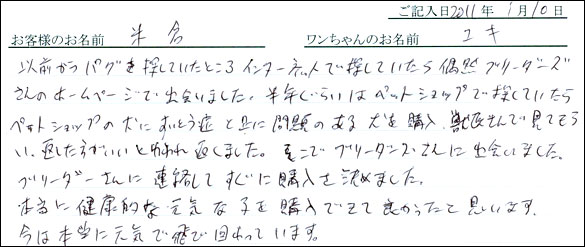 ご記入日2011年 1月10日
お客様のお名前 米倉 ワンちゃんのお名前 ユキ
以前からパグを探していたところインターネットで探していたら偶然ブリーダーズ
さんのホームページで出会いました。半年ぐらいはペットショップで探していたら
ペットショップの犬にずいとう症と共に問題のある犬を購入、獣医さんで見てもら
い、返した方がいいと言われ返しました。そこでブリーダーズさんに出会いました。
ブリーダーさんに連絡してすぐに購入を決めました。
本当に健康的な元気な子を購入できて良かったと思います。
今は本当に元気で飛び回っています。